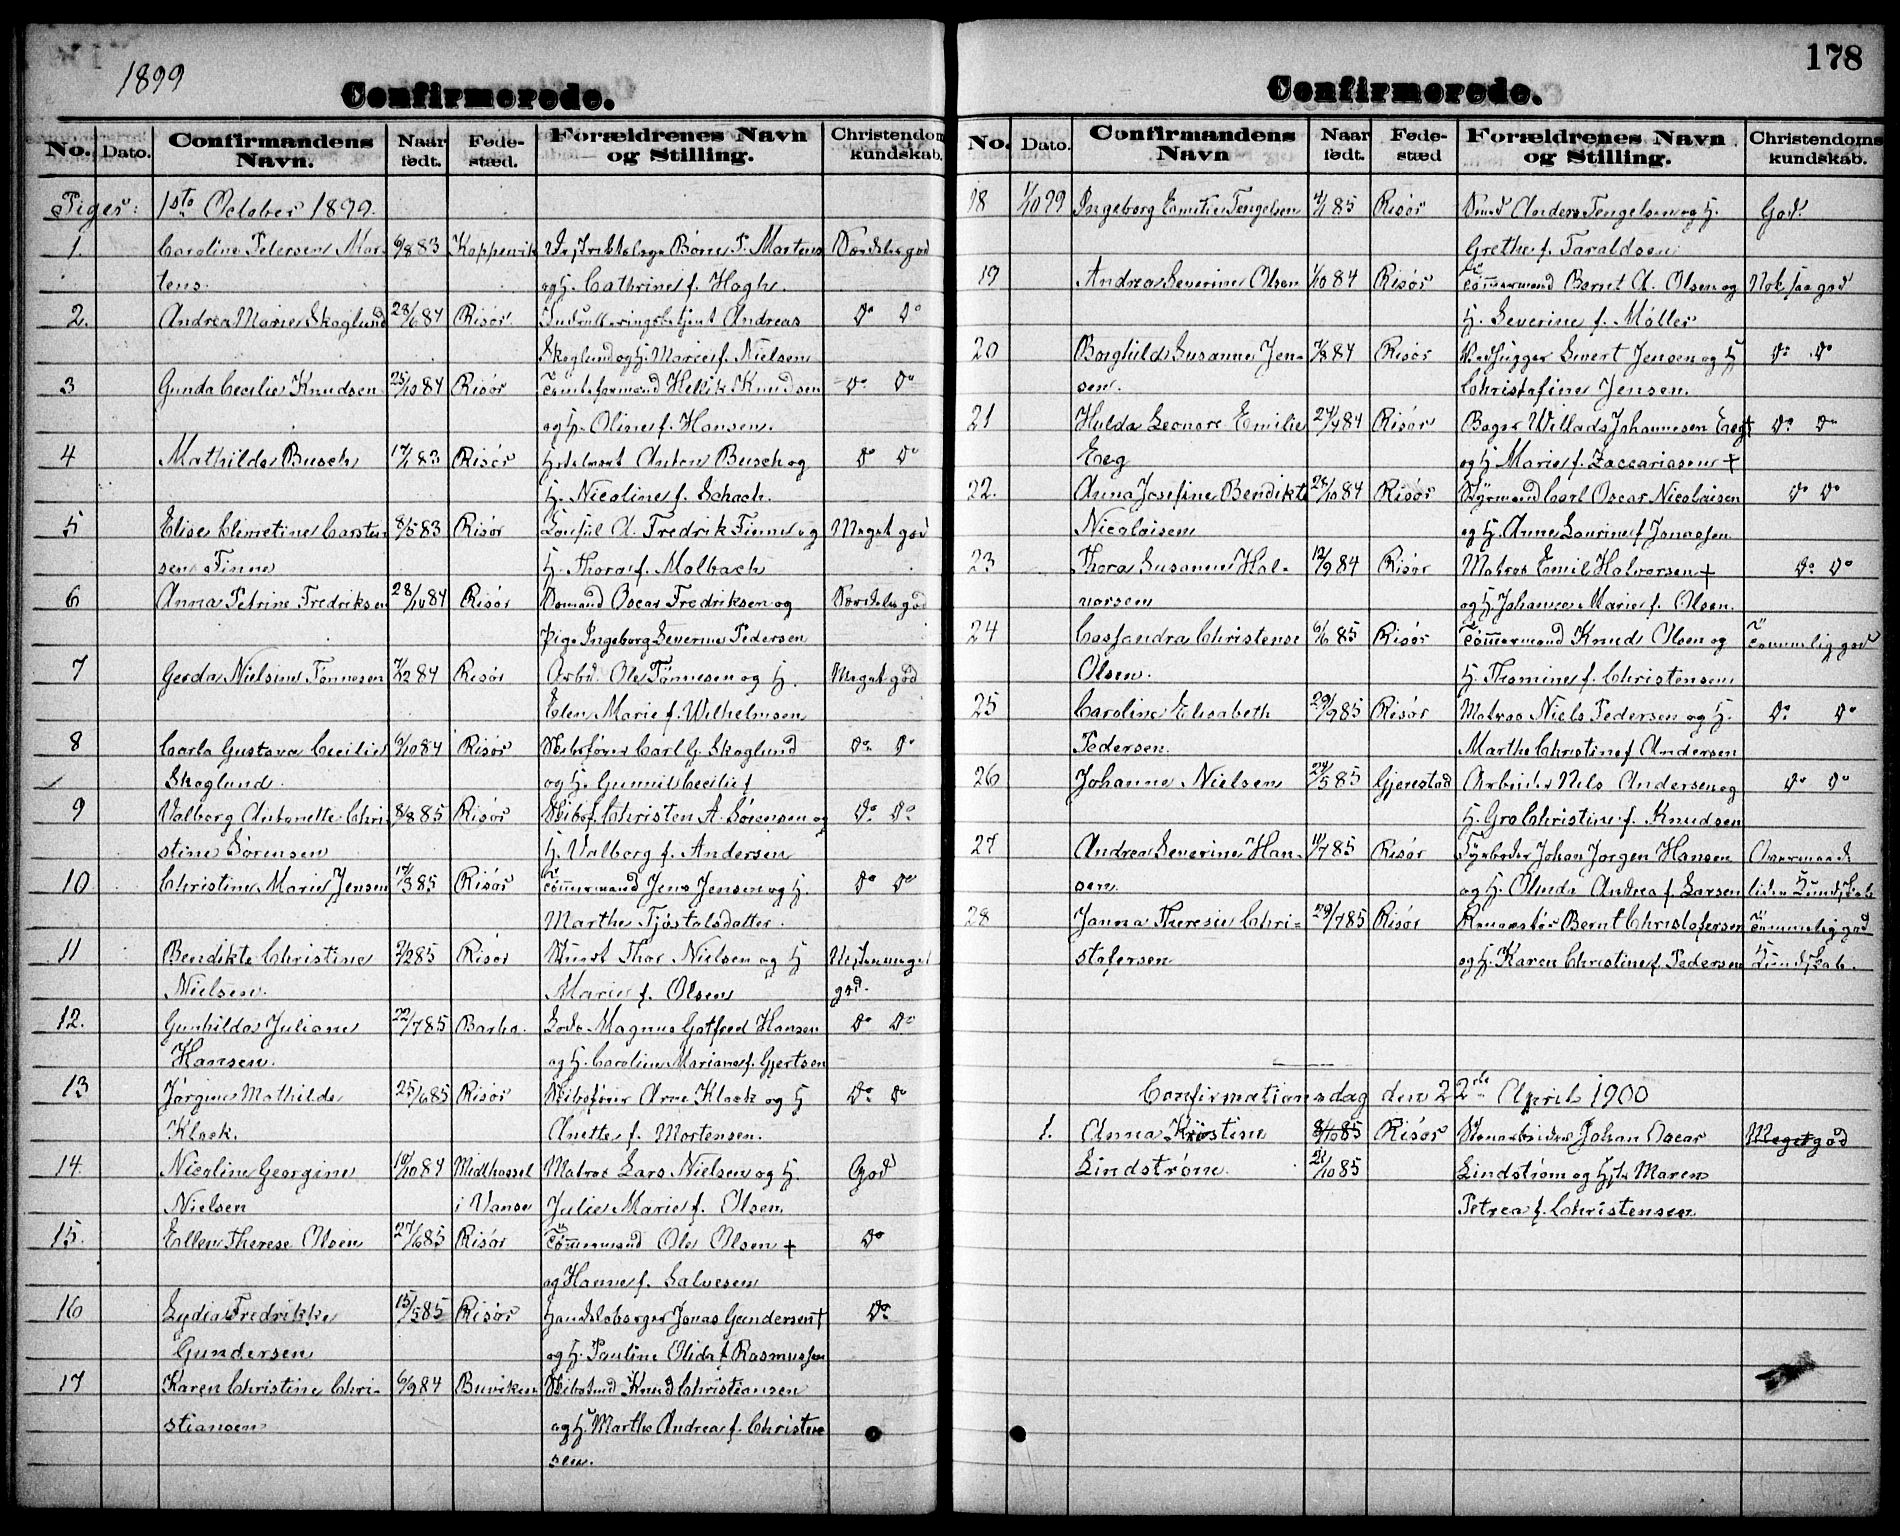 1899
Confirmerede.
No. Dato. Confirmandens Navn. Naar født. Føde-stæd. Forældrenes Navn og Stilling. Christendomskundskab.
Piger: 1ste October 1899.
1. Caroline Petersen Mar- 6/8 83 Koppervik Børre P. Martens Særdeles god
tens. og H. Cathrine f. Hagh.
2. Andrea Marie Skoglund 28/6 84 Risør Andreas Do Do
Skoglund og H. Marie f. Nielsen
3 Gunda Cecilie Knudsen 25/10 84 Risør Knudsen Do Do
og H. Oline f. Hansen.
4 Mathilde Busch 17/1 83 Risør Anton Busch og Do Do
H. Nicoline f. Schach.
5 Elise Clemetine Carsten- 8/5 83 Risør Konsul A. Fredrik Finne og Meget god
sen Finne H. Thora f. Malbach
6 Anna Petrine Fredriksen 28/10 84 Risør Sømand Oscar Fredriksen og Særdeles god
pige Ingeborg Severine Pedersen
7 Gerda Nielsine Tønnesen 7/12 84 Risør Arbd. Ole Tønnesen og H. Meget god
Elen Marie f. Wilhelmsen
8 Carla Gustava Cecilie 6/10 84 Risør Skibsfører Carl G. Skoglund Do Do
Skoglund. og H. Gunnil Cecilie f
9 Valborg Antonette Chri- 8/8 85 Risør Skibsf. Christen A. Sørensen og Do Do
stine Sørensen H. Valborg f. Andersen
10 Christine Marie Jensen 17/3 85 Risør Tømmermand Jens Jensen og H. Do Do
Marthe Tjøstolsdatter.
11 Bendikte Christine 2/2 85 Risør Stuert Thor Nielsen og H Næsten meget
Nielsen. Marie f. Olsen god.
12. Gunhilda Juliane 22/7 85 Barbo. Lods Magnus Gotfred Hansen Do Do
Hansen. og H. Caroline Mariane f. Gjertsen
13 Jørgine Mathilde 25/6 85 Risør Skibsfører Arne Klock og H Do Do
Klock. Anette f. Mortensen.
14. Nicoline Georgine 10/10 84 Midthassel Matros Lars Nielsen og H. God
Nielsen i Vanse Julie Marie f. Olsen
15. Ellen Therese Olsen 27/6 85 Risør Tømmermand Ole Olsen † Do
og Hanne f. Salvesen
16 Lydia Fredrikke 15/5 85 Risør Handelsborger Jonas Gundersen † Do
Gundersen og H. Pauline Olida f. Rasmussen
17 Karen Christine Chri- 6/9 84 Buviken Skibstmd Knud Christiansen
stiansen og H. Marthe Andrea f. Christen
sen.
178
Confirmerede.
No. Dato. Confirmandens Navn Naar født. Føde-stæd Forældrenes Navn og Stilling. Christendomskundskab.
18 1/10 99 Ingeborg Emilie Tengelsen 4/1 85 Risør Smed Anders Tengelsen og H. God.
Grethe f. Taraldsen
19 Andrea Severine Olsen 1/10 84 Risør Tømmermand Bernt A. Olsen og Nok saa god
H. Severine f. Møller
20 Borghild Susanne Jen- 7/8 84 Risør Sivert Jensen og H Do Do
sen. Christofine Jensen.
21 Hulda Leonore Emilie 27/4 84 Risør Bager Willads Johannesen Eeg † Do Do
Eeg og H Marie f. Zaccariasen †
22. Anna Josefine Bendikte 28/10 84 Risør Styrmand Carl Oscar Nicolaisen Do Do
Nicolaisen og H. Anne Laurine f Jonassen
23 Thora Susanne Hal- 12/9 84 Risør Matros Emil Halvorsen † Do Do
vorsen og H. Johanne Marie f. Olsen.
24 Cassandra Christense 6/6 85 Risør Tømmermand Knud Olsen og Temmelig god
Olsen. H. Thomine f. Christensen
25 Caroline Elisabeth 29/9 85 Risør Matros Niels Pedersen og H. Do Do
Pedersen. Marthe Christine f Andersen
26 Johanne Nielsen 24/5 85 Gjerestad Arbeider Nils Andersen og Do Do
H. Gro Christine f. Knudsen
27 Andrea Severine Han- 11/7 85 Risør Fyrbøder Johan Jørgen Hansen
sen og H. Olinda Andrea f Larsen liden Kundskab
28 Janna Theresie Chri- 29/7 85 Risør Bernt Christofersen Temmelig god
stofersen og H. Karen Christine f. Pedersen Kundskab.
Confirmationsdag den 22de April 1900
1. Anna Kristine 8/10 85 Risør Johan Oscar Meget god
Lindstrøm. 21/10 85 Lindstrøm og Hstr Maren
Petrea f. Christensen